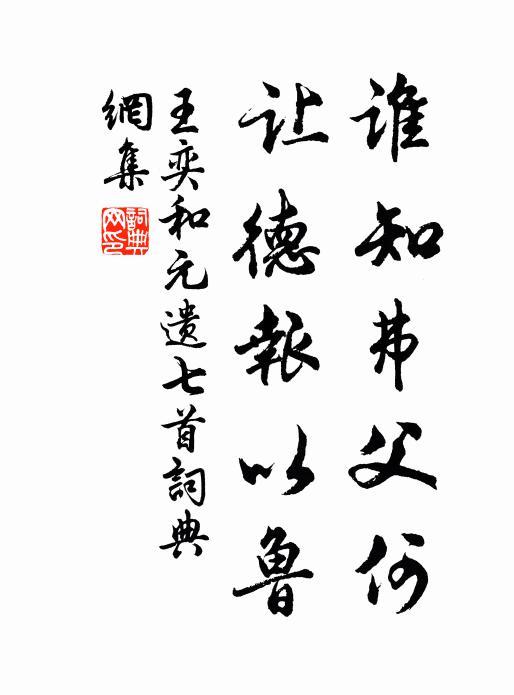 谁知弗父何
让德報以魯
王奕和元遗七首詞典
網集
詞典網印